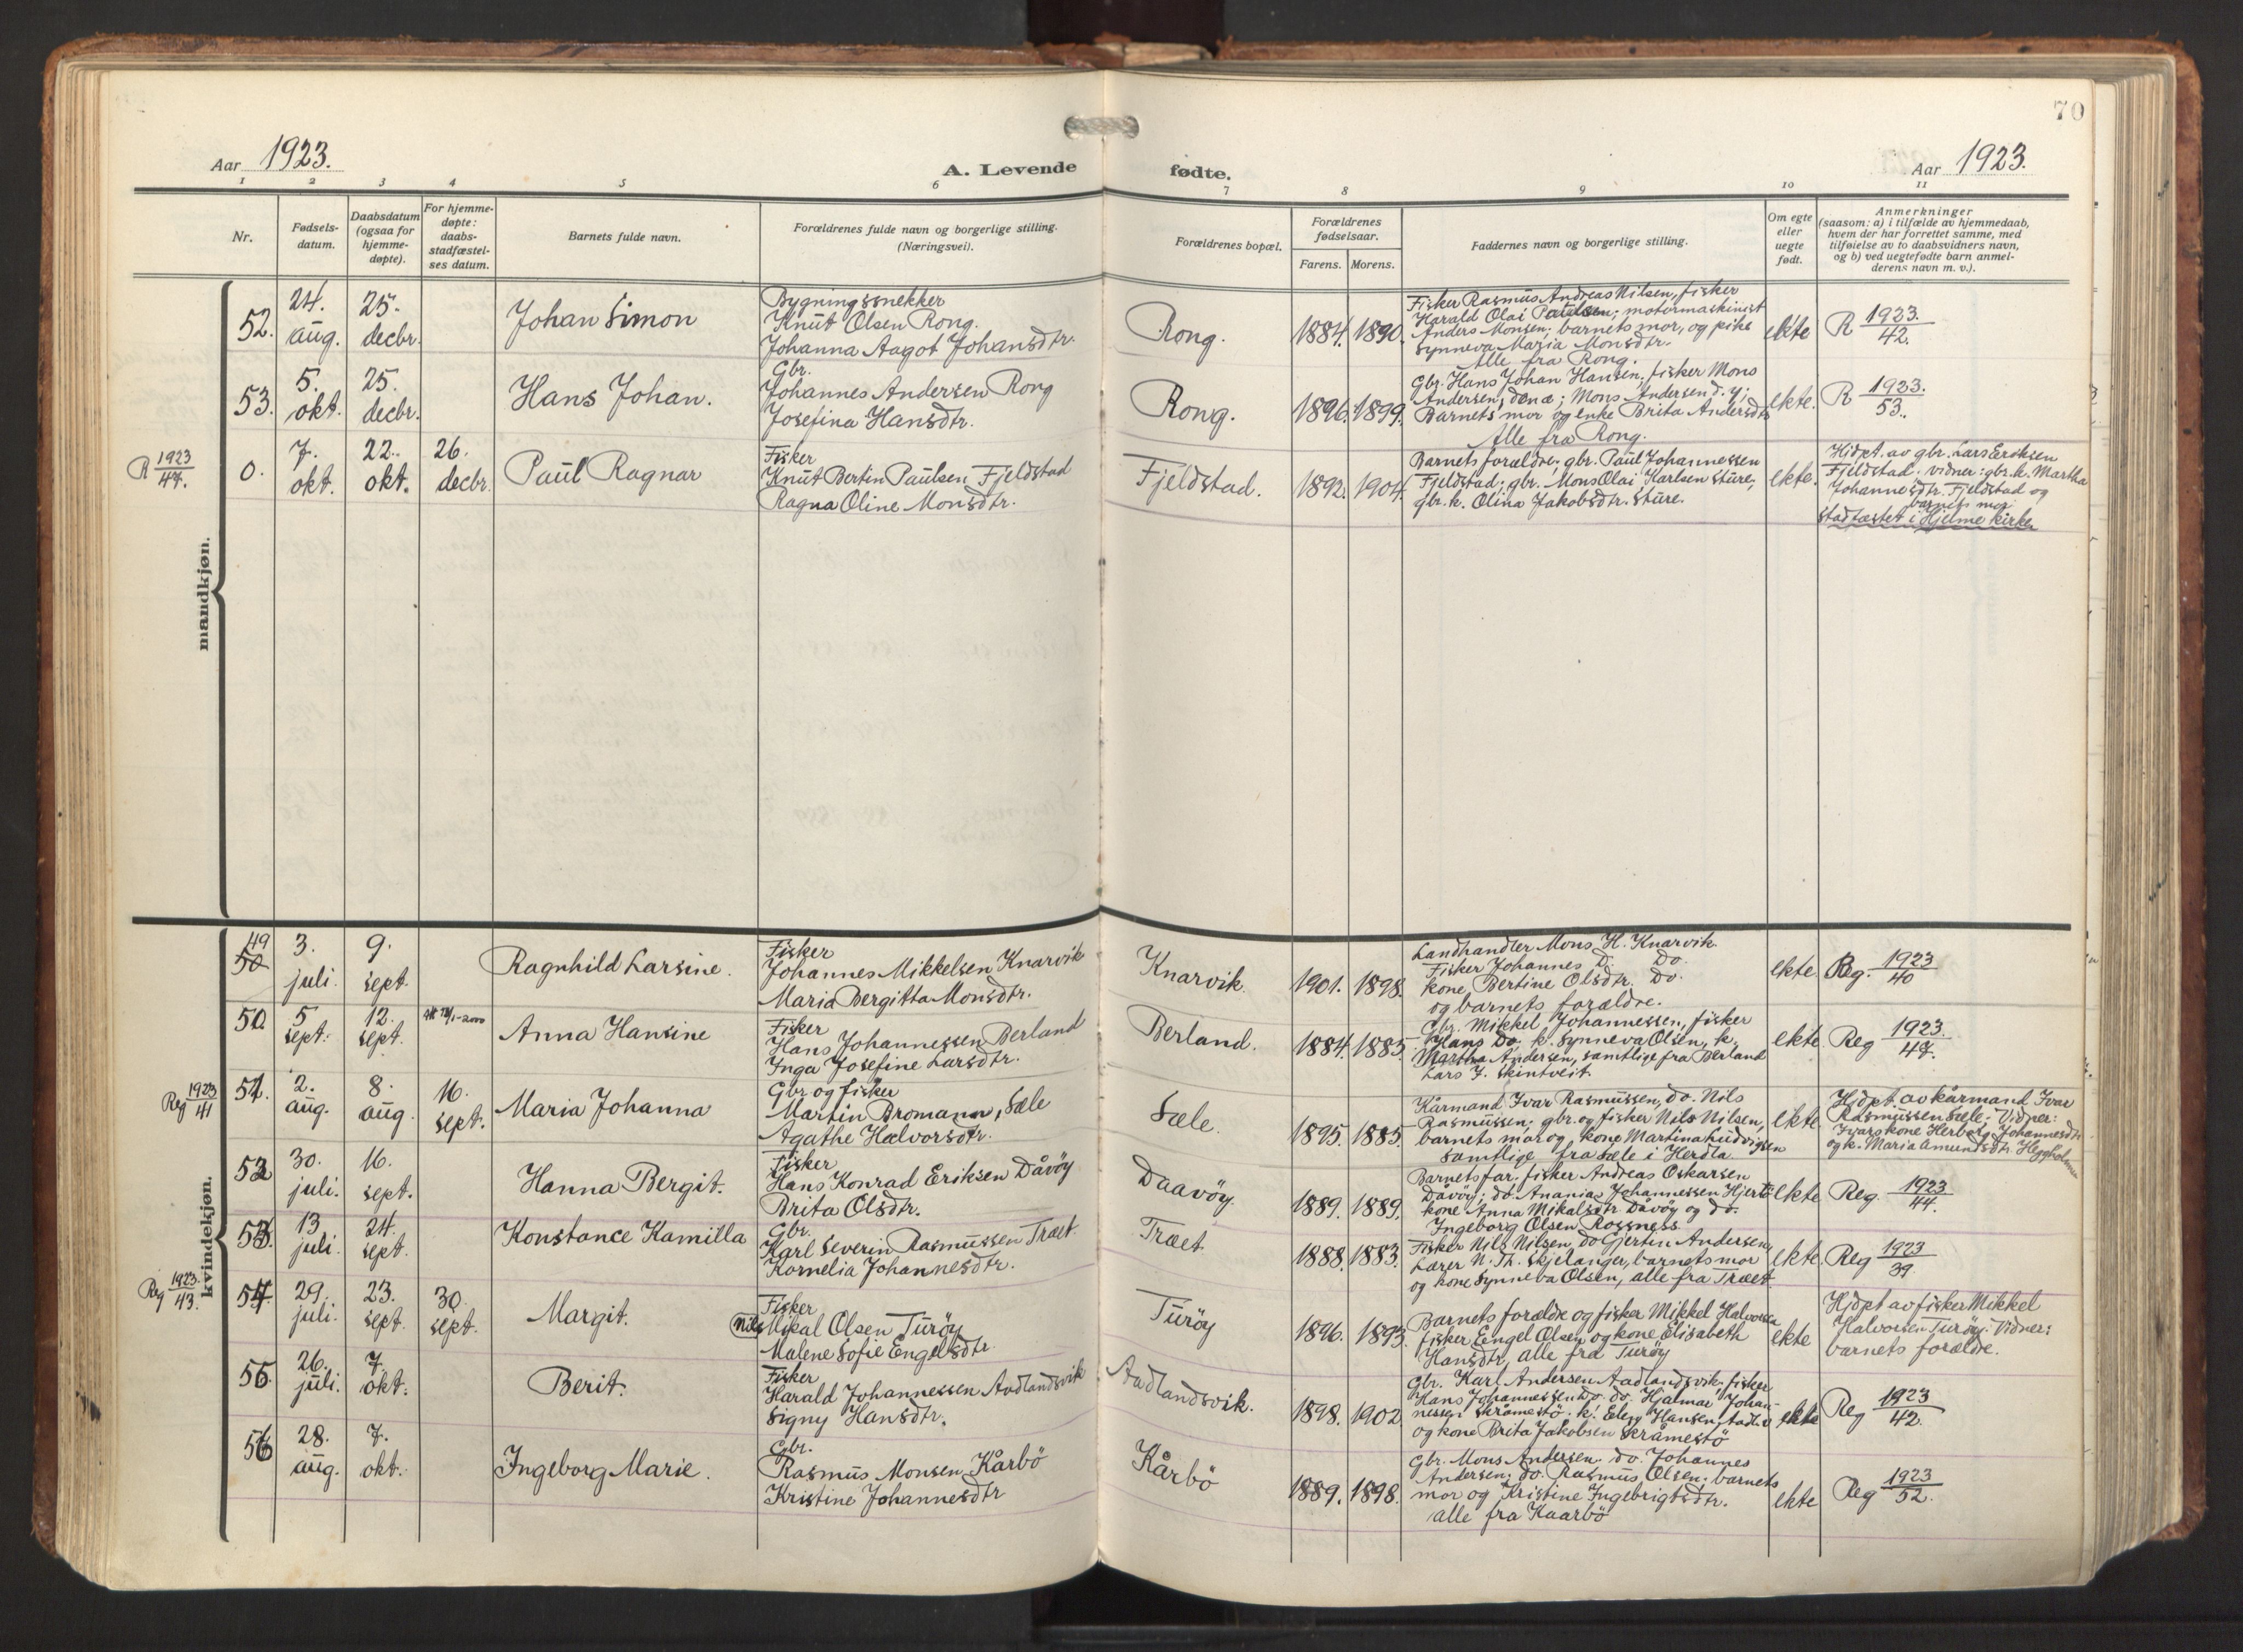 70
Aar 1923.
A. Levende
fødte.
Aar 1923.
1 2 3 4 5 6 7 8 9 10 11
Nr.
Fødsels-
datum.
Daabsdatum
(ogsaa for
hjemme-
døpte).
For hjemme-
døpte:
daabs-
stadfæstel-
ses datum.
Barnets fulde navn.
Forældrenes fulde navn og borgerlige stilling.
(Næringsvei).
Forældrenes bopæl.
Forældrenes
fødselsaar.
Farens. Morens.
Faddernes navn og borgerlige stilling.
Om egte
eller
uegte
født.
Anmerkninger
(saasom: a) i tilfælde av hjemmedaab,
hvem der har forrettet samme, med
tilføielse av to daabsvidners navn,
og b) ved uegtefødte barn anmel-
derens navn m. v.).
mandkjøn.
52.
24.
aug.
25.
decbr.
Johan Simon
Bygningssnekker
Knut Olsen Rong.
Johanna Aagot Johansdtr.
Rong.
1884. 1890.
Fisker Rasmus Andreas Nilsen, fisker
Harald Olai Paulsen; motormaskinist
Anders Monsen; barnets mor, og pike
Synneva Maria Monsdtr.
Alle fra Rong.
ekte
R 1923.
42.
53.
5.
okt.
25.
decbr.
Hans Johan.
Gbr.
Johannes Andersen Rong
Josefina Hansdtr.
Rong.
1896. 1899.
Gbr. Hans Johan Hansen, fisker Mons
Andersen, d. æ; Mons Andersen d. y;
Barnets mor og enke Brita Andersdtr
Alle fra Rong.
ekte.
R 1923.
53.
R 1923
47.
0.
7.
okt.
22.
okt.
26.
decbr.
Paul Ragnar
Fisker
Knut Bertin Paulsen Fjeldstad
Ragna Oline Monsdtr.
Fjeldstad.
1892. 1904.
Barnets forældre; gbr. Paul Johannessen
Fjeldstad; gbr. Mons Olai Karlsen Sture;
gbr. k. Olina Jakobsdtr. Sture.
ekte.
Hjdpt. av gbr. Lars Eriksen
Fjeldstad. vidner: gbr. k. Martha
Johannesdtr. Fjeldstad og
barnets mor
Stadfæstet i Hjelme kirke
kvindekjøn.
49
50
3.
juli.
9.
sept.
Ragnhild Larsine.
Fisker
Johannes Mikkelsen Knarvik
Maria Bergitta Monsdtr.
Knarvik.
1901. 1898.
Landhandler Mons H. Knarvik.
Fisker Johannes D. Do.
kone Bertine Olsdtr. Do
og barnets forældre.
ekte
Reg. 1923
40
50
5
sept.
12.
sept.
Anna Hansine
Fisker
Hans Johannessen Berland
Inga Josefine Larsdtr.
Berland.
1884. 1885.
Gbr. Mikkel Johannessen, fisker
Hans Do. k. Synneva Olsen, k.
Martha Andersen, samtlige fra Berland
Lars J. Skintveit.
ekte
Reg 1923.
47.
Reg 1923
41
51.
2.
aug.
8.
aug.
16.
sept.
Maria Johanna
Gbr og fisker
Martin Bromann, Sæle
Agathe Halvorsdtr.
Sæle.
1895. 1885.
Kårmand Ivar Rasmussen, do. Nils
Rasmussen; gbr. og fisker Nils Nilsen,
barnets mor og kone Martina Ludvigsen
samtlige fra Sæle i Herdla.
ekte
Hjdpt. av kårmand Ivar
Rasmussen Sæle; Vidner:
Ivars kone Herborg Johannesdtr
og k. Maria Amundsdtr. Heggholmen
52
30.
juli.
16.
sept.
Hanna Bergit.
Fisker
Hans Konrad Eriksen Dåvöy
Brita Olsdtr.
Daavöy.
1889. 1889.
Barnets far, fisker Andreas Oskarsen
Dåvöy; do. Ananias Johannessen Hjertö
kone Anna Mikalsdtr Dåvöy og do.
Ingeborg Olsen Rossnes
ekte
Reg. 1923
44.
53.
13
juli.
24.
sept.
Konstance Kamilla
Gbr.
Karl Severin Rasmussen Træet
Kornelia Johannesdtr.
Træet.
1888. 1883.
Fisker Nils Nilsen, do Gjertin Andersen,
Lærer N. Th. Skjelanger, barnets mor
og kone Synneva Olsen, alle fra Træet
ekte
Reg 1923
39
Reg 1923.
43.
54.
29.
juli.
23.
sept.
30.
sept.
Margit.
Fisker
Nils Mikal Olsen Turöy
Malene Sofie Engelsdtr.
Turöy
1896. 1893.
Barnets forældre og fisker Mikkel Halvorsen
fisker Engel Olsen og kone Elisabeth
Hansdtr, alle fra Turöy
ekte
Hjdpt av fisker Mikkel
Halvorsen Turöy. Vidner:
barnets forældre.
55.
26.
juli.
7.
okt.
Berit.
Fisker
Harald Johannessen Aadlandsvik
Signy Hansdtr.
Aadlandsvik.
1898. 1902
Gbr. Karl Andersen Aadlandsvik, fisker
Hans Johannessen do. do. Hjalmar Johan-
nessen Skråmestö. k. Hansen Aadl.v
og kone Brita Jakobsen Skråmestö
ekte
Reg 1923
42.
56
28.
aug.
7.
okt.
Ingeborg Marie.
Gbr.
Rasmus Monsen Kårbö
Kristine Johannesdtr
Kårbö
1889. 1898.
Gbr. Mons Andersen. do. Johannes
Andersen; do. Rasmus Olsen; barnets
mor og Kristine Ingebrigtsdtr.
alle fra Kaarbö
ekte
Reg 1923
52.